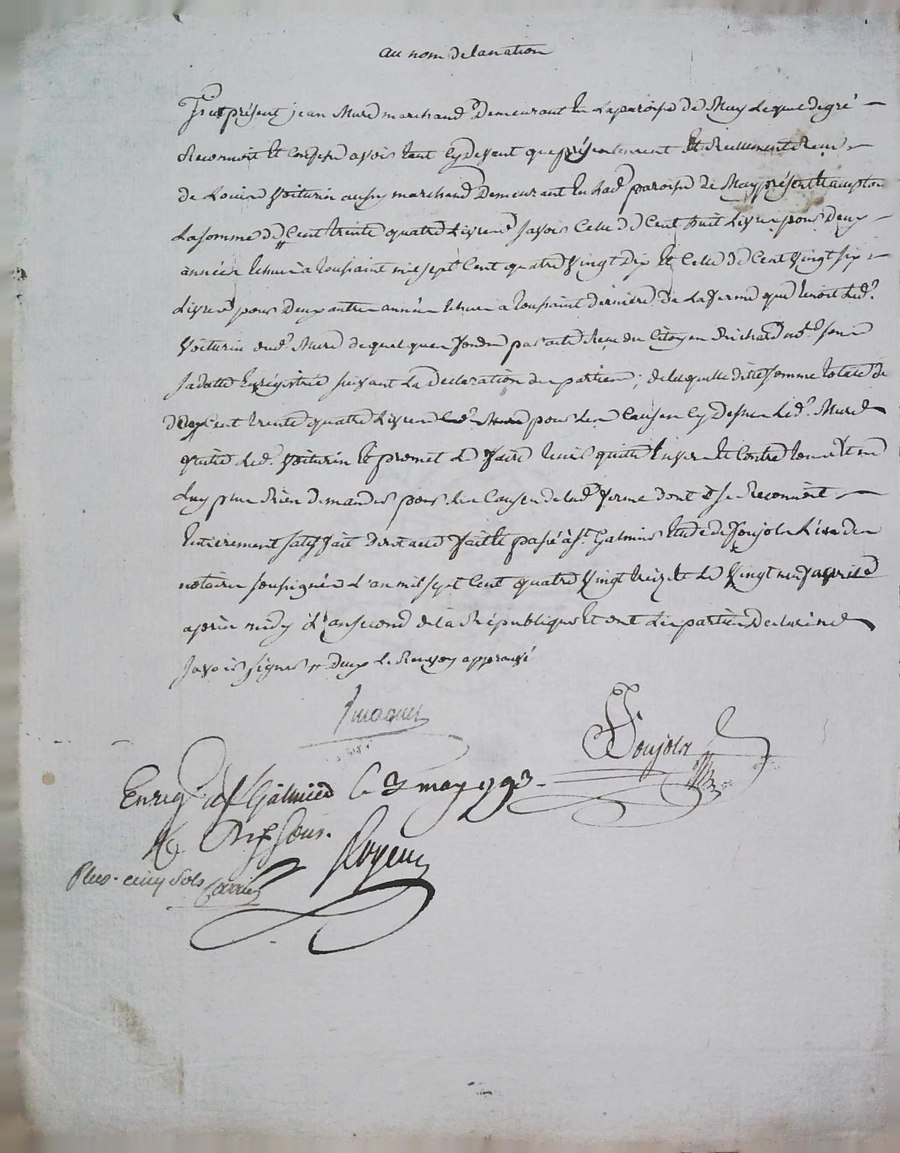 au nom de la nation
Fut présent jean Mure marchand Demeurant En La paroisse de Mey Lequel de gré
Reconnoit Et Confesse avoir tant Cy devant que présentement Et Réellement Reçu
de Louis Voiturin aussy marchand Demeurant En lad. paroisse de Mey présent Et acceptant
La somme de # Cent trente quatre Livres savoir Celle de Cent huit Livres pour deux
années Echues à toussaint mil sept Cent quatre Vingt dix Et Celle de Cent Vingt six
Livres pour Deux autres années Echues a toussaint dernière De La ferme que tenoit Led.
Voiturin dud. Mure de quelques fonds par acte Reçu du Citoyen Richard no.re sous
sa datte Enregistrée suivant La Declaration des parties; de laquelle ditte somme totale de
Deux Cent trente quatre Livres pour Les Causes Cy dessus Led. Mure
quitte Led. Voiturin Et promet Le faire tenir quitte Envers Et Contre tous Et ne
Luy plus Rien demander pour Les Causes de lad. ferme dont il se Reconnoit
Entièrement satisfait Dont acte faitte passé à St. Galmier Etude de Poujolx L'un des
notaires soussignés L'an mil sept Cent quatre Vingt treize Le Vingt neuf avril
après midy L'an second de la République Et ont Les parties Declaré ne
savoir signer # Deux Le Renvoy approuvé
Poujolx
Enreg. à St Galmier le 3 may 1793.
R. sous.
Plus. cinq sols